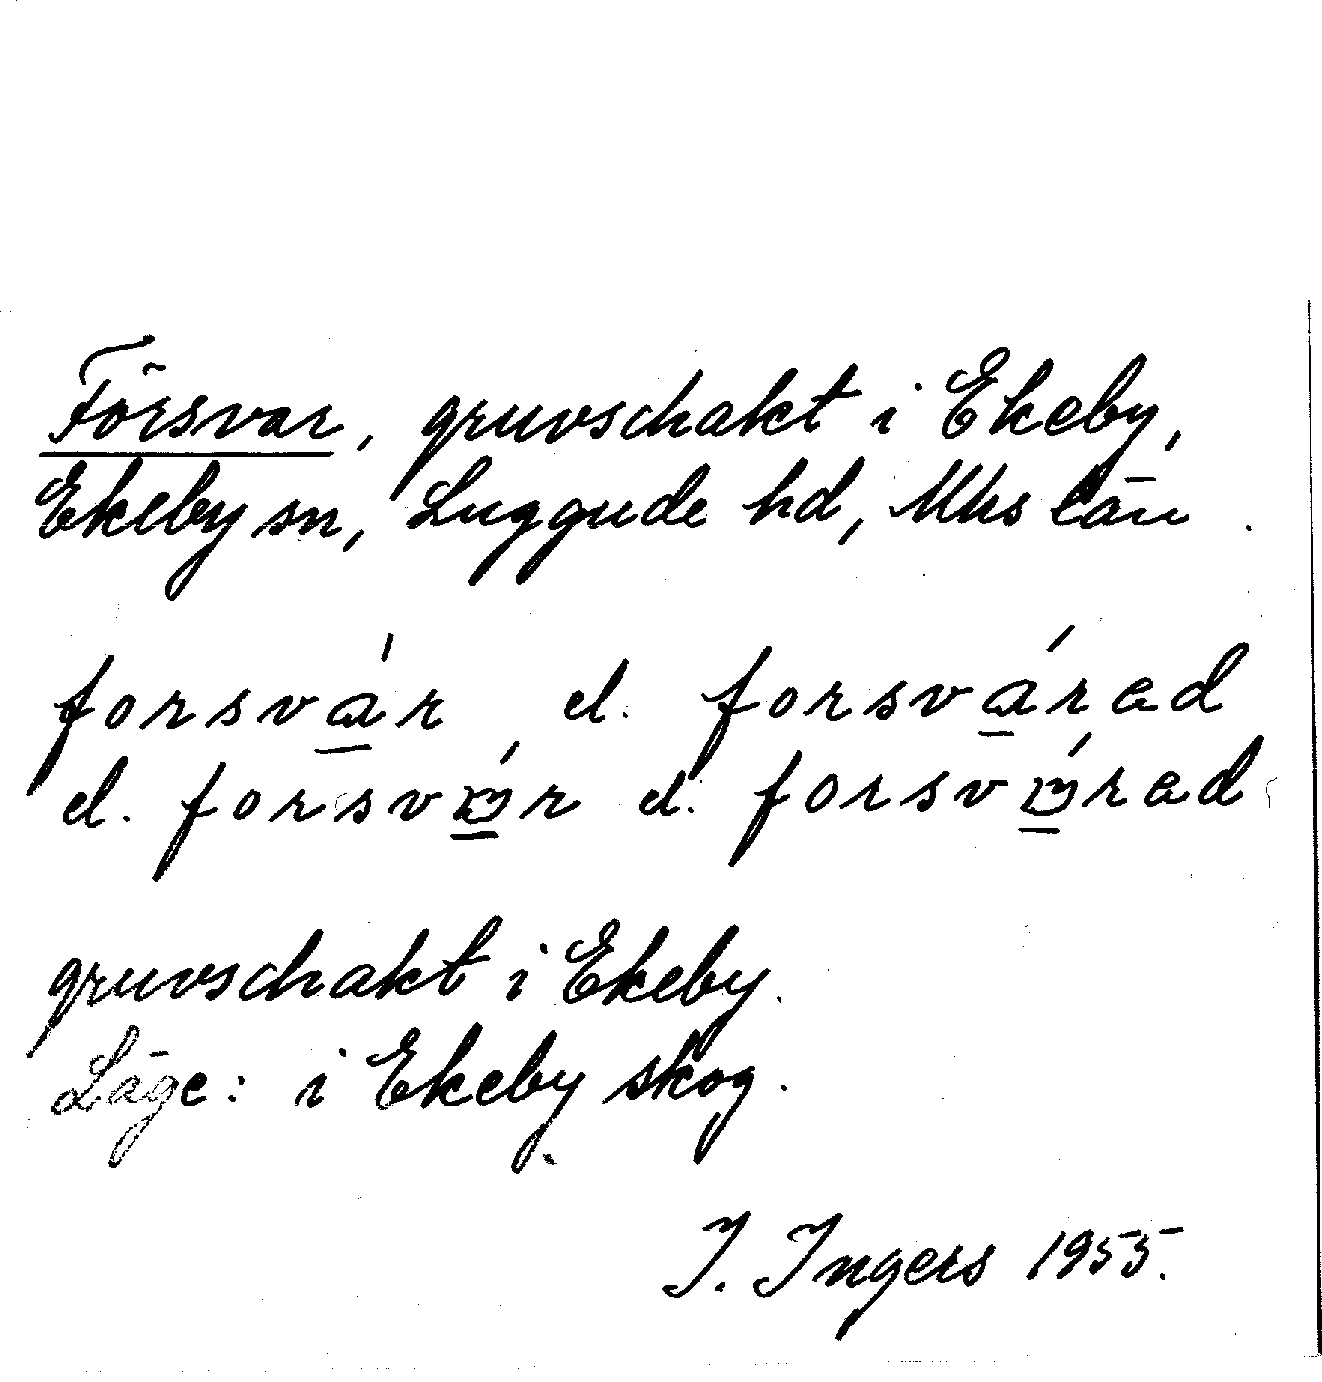 Försvar, gruvschakt i Ekeby,
Ekeby sn, Luggude hd, Mhs län.
forsvár el. forsvárad
el. forsvár el. forsvárad
gruvschakt i Ekeby.
Läge: i Ekeby skog.
I. Ingers 1955.